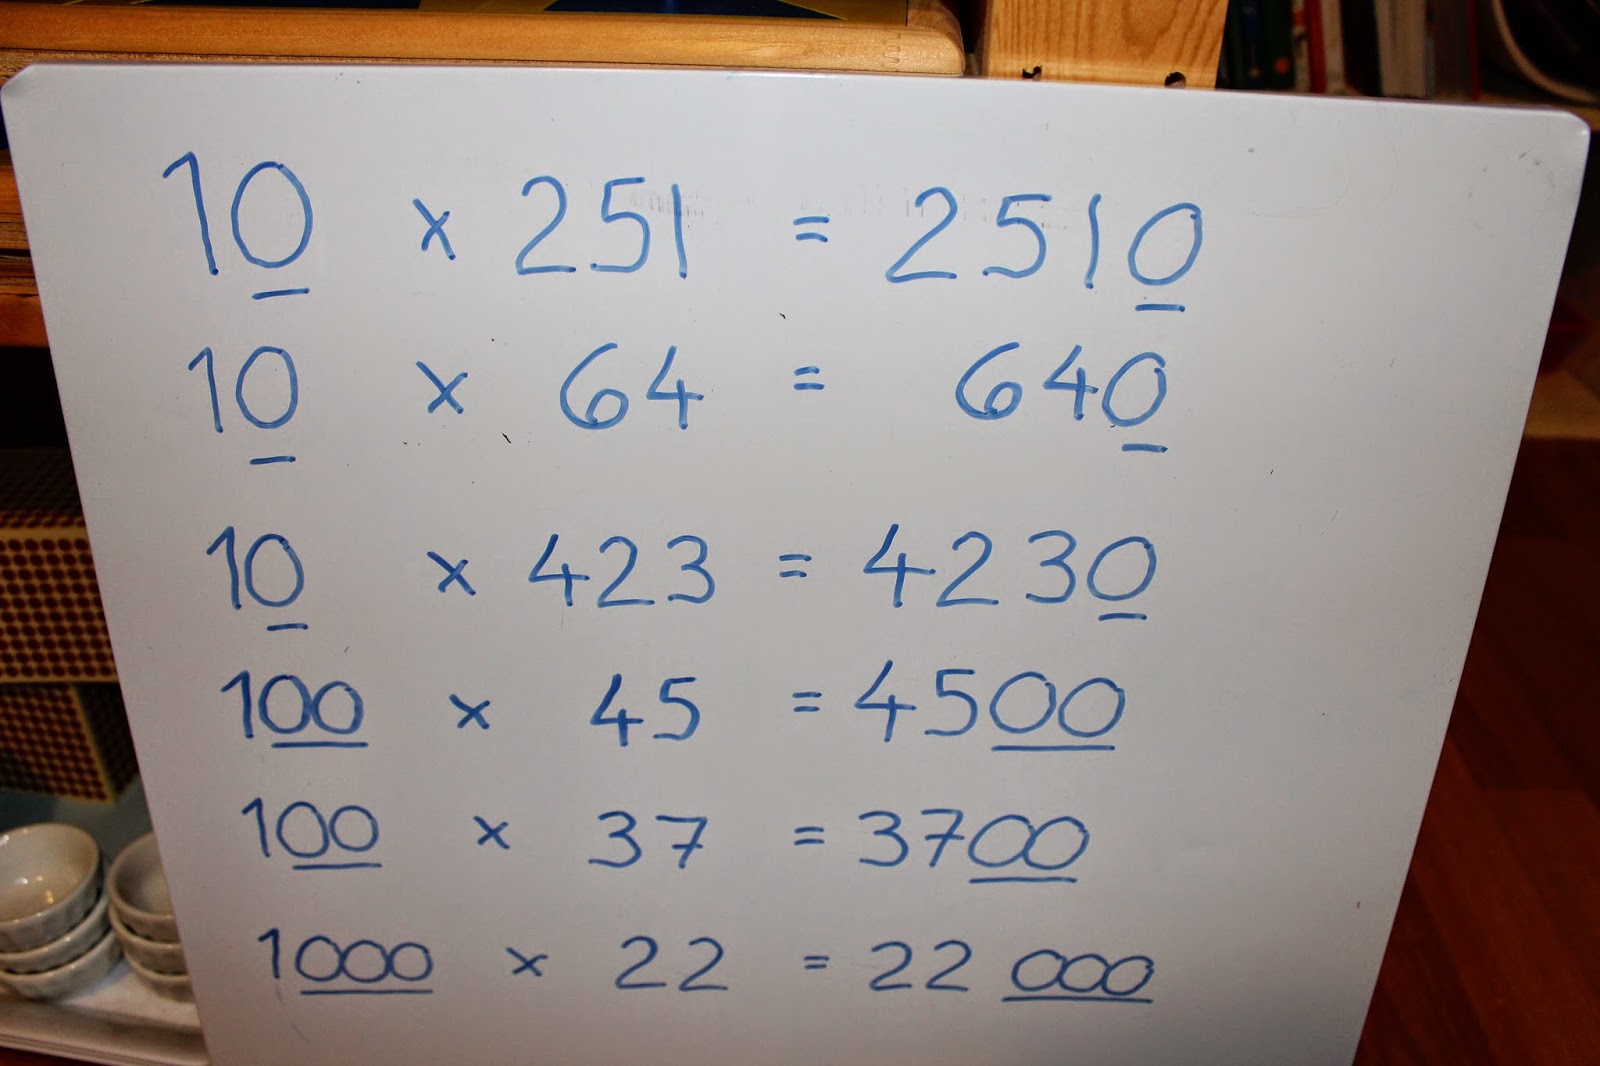 10 × 251 = 2510
10 × 64 = 640
10 × 423 = 4230
100 × 45 = 4500
100 × 37 = 3700
1000 × 22 = 22 000